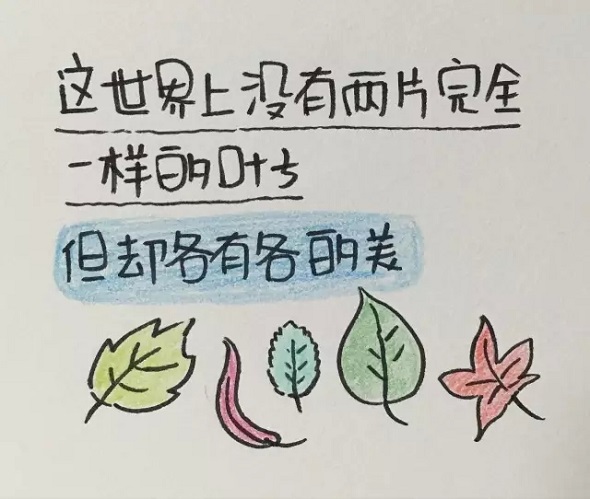 这世界上没有两片完全
一样的叶子
但却各有各的美